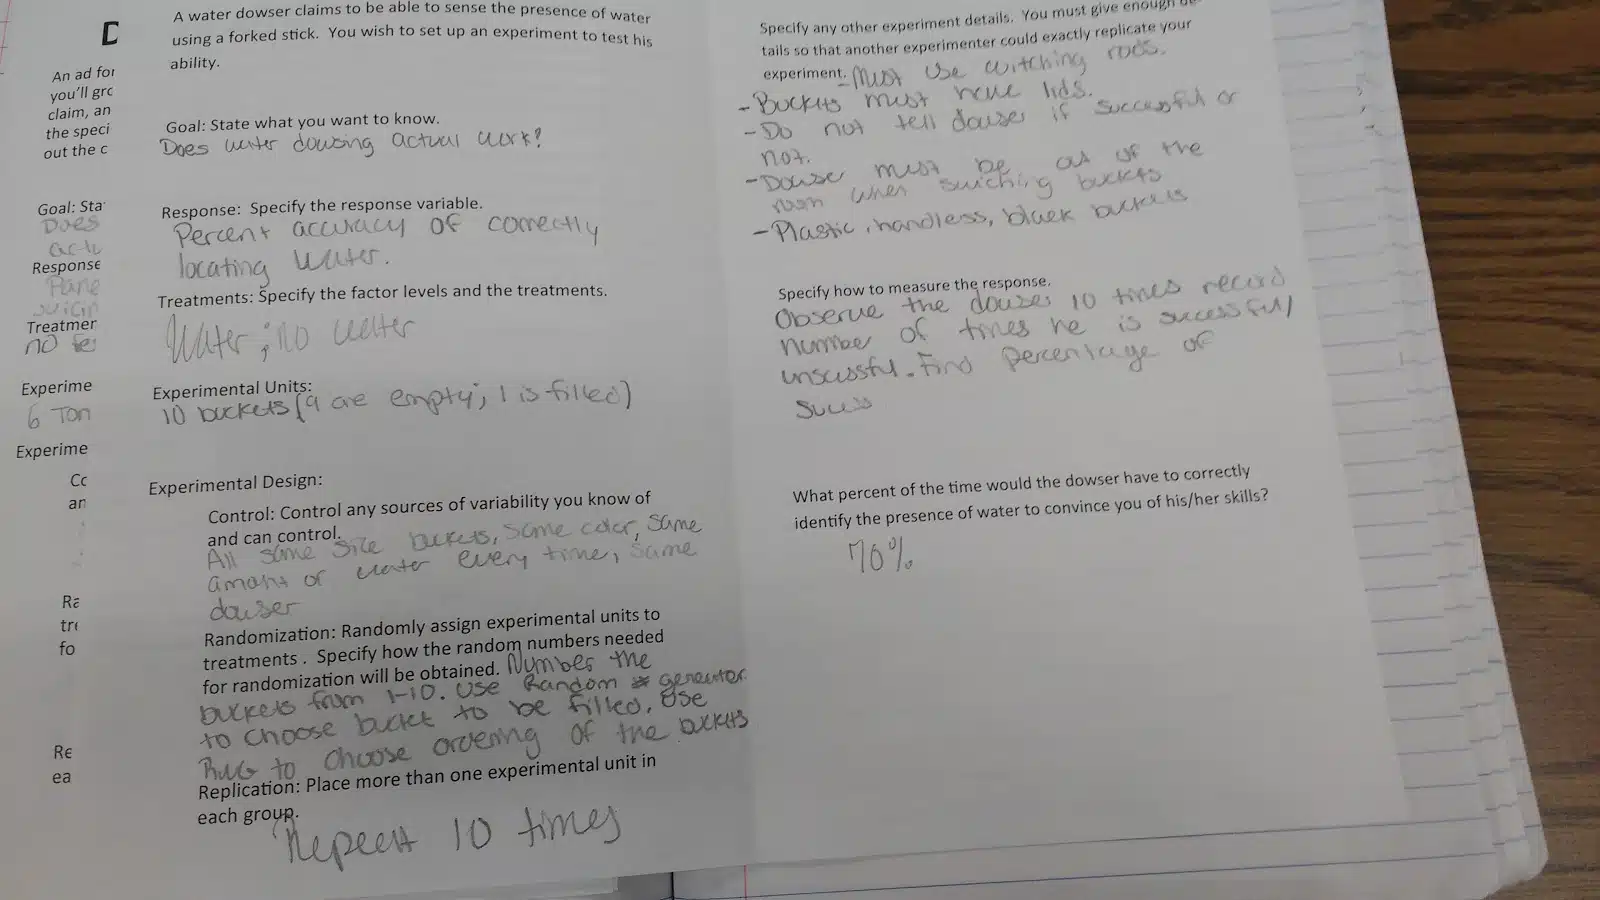 D
An ad for
you'll gro
claim, an
the speci
out the c
Goal: Sta
Does
actu
Response
Pane
Treatmer
no
Experime
6 Ton
Experime
Co
an
Ra
tre
fo
Re
ea
A water dowser claims to be able to sense the presence of water
using a forked stick. You wish to set up an experiment to test his
ability.
Goal: State what you want to know.
Does water dowsing actual work?
Response: Specify the response variable.
Percent accuracy of correctly
locating water.
Treatments: Specify the factor levels and the treatments.
Water; no water
Experimental Units:
10 buckets (9 are empty; 1 is filled)
Experimental Design:
Control: Control any sources of variability you know of
and can control.
All same size buckets, same color, same
amant of water every time, same
dowser
Randomization: Randomly assign experimental units to
treatments . Specify how the random numbers needed
for randomization will be obtained. Number the
buckets from 1-10. Use Random # generator
to choose bucket to be filled. Use
RNG to choose ordering of the buckets
Replication: Place more than one experimental unit in
each group.
Repeat 10 times
Specify any other experiment details. You must give enough de-
tails so that another experimenter could exactly replicate your
experiment. - Must use witching rods.
- Buckets must have lids.
- Do not tell dowser if successful or
not.
- Dowser must be out of the
room when swiching buckets
- Plastic, handless, black buckets
Specify how to measure the response.
Observe the dowser 10 times record
number of times he is successful/
unsucssful. Find percentage of
sucess
What percent of the time would the dowser have to correctly
identify the presence of water to convince you of his/her skills?
70%